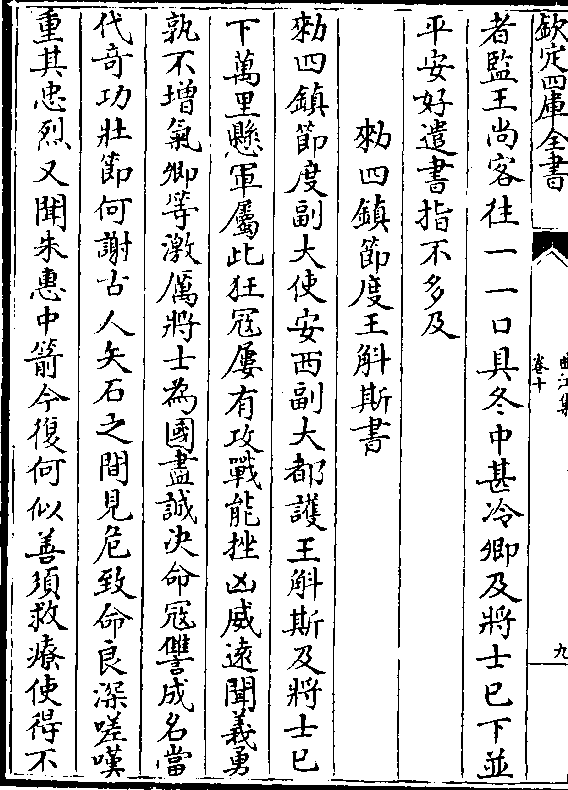 欽定四庫全書
曲江集
卷十
九
者監王尚客往一一口具冬中甚冷卿及將士已下並
平安好遣書指不多及
勅四鎮節度王斛斯書
勅四鎮節度副大使安西副大都護王斛斯及將士已
下萬里懸軍屬此狂寇屢有攻戰能挫凶威遠聞義勇
孰不增氣卿等激厲將士為國盡誠決命寇讐成名當
代竒功壯節何謝古人矢石之間見危致命良深嗟嘆
重其忠烈又聞朱惠中箭今復何似善須救療使得不